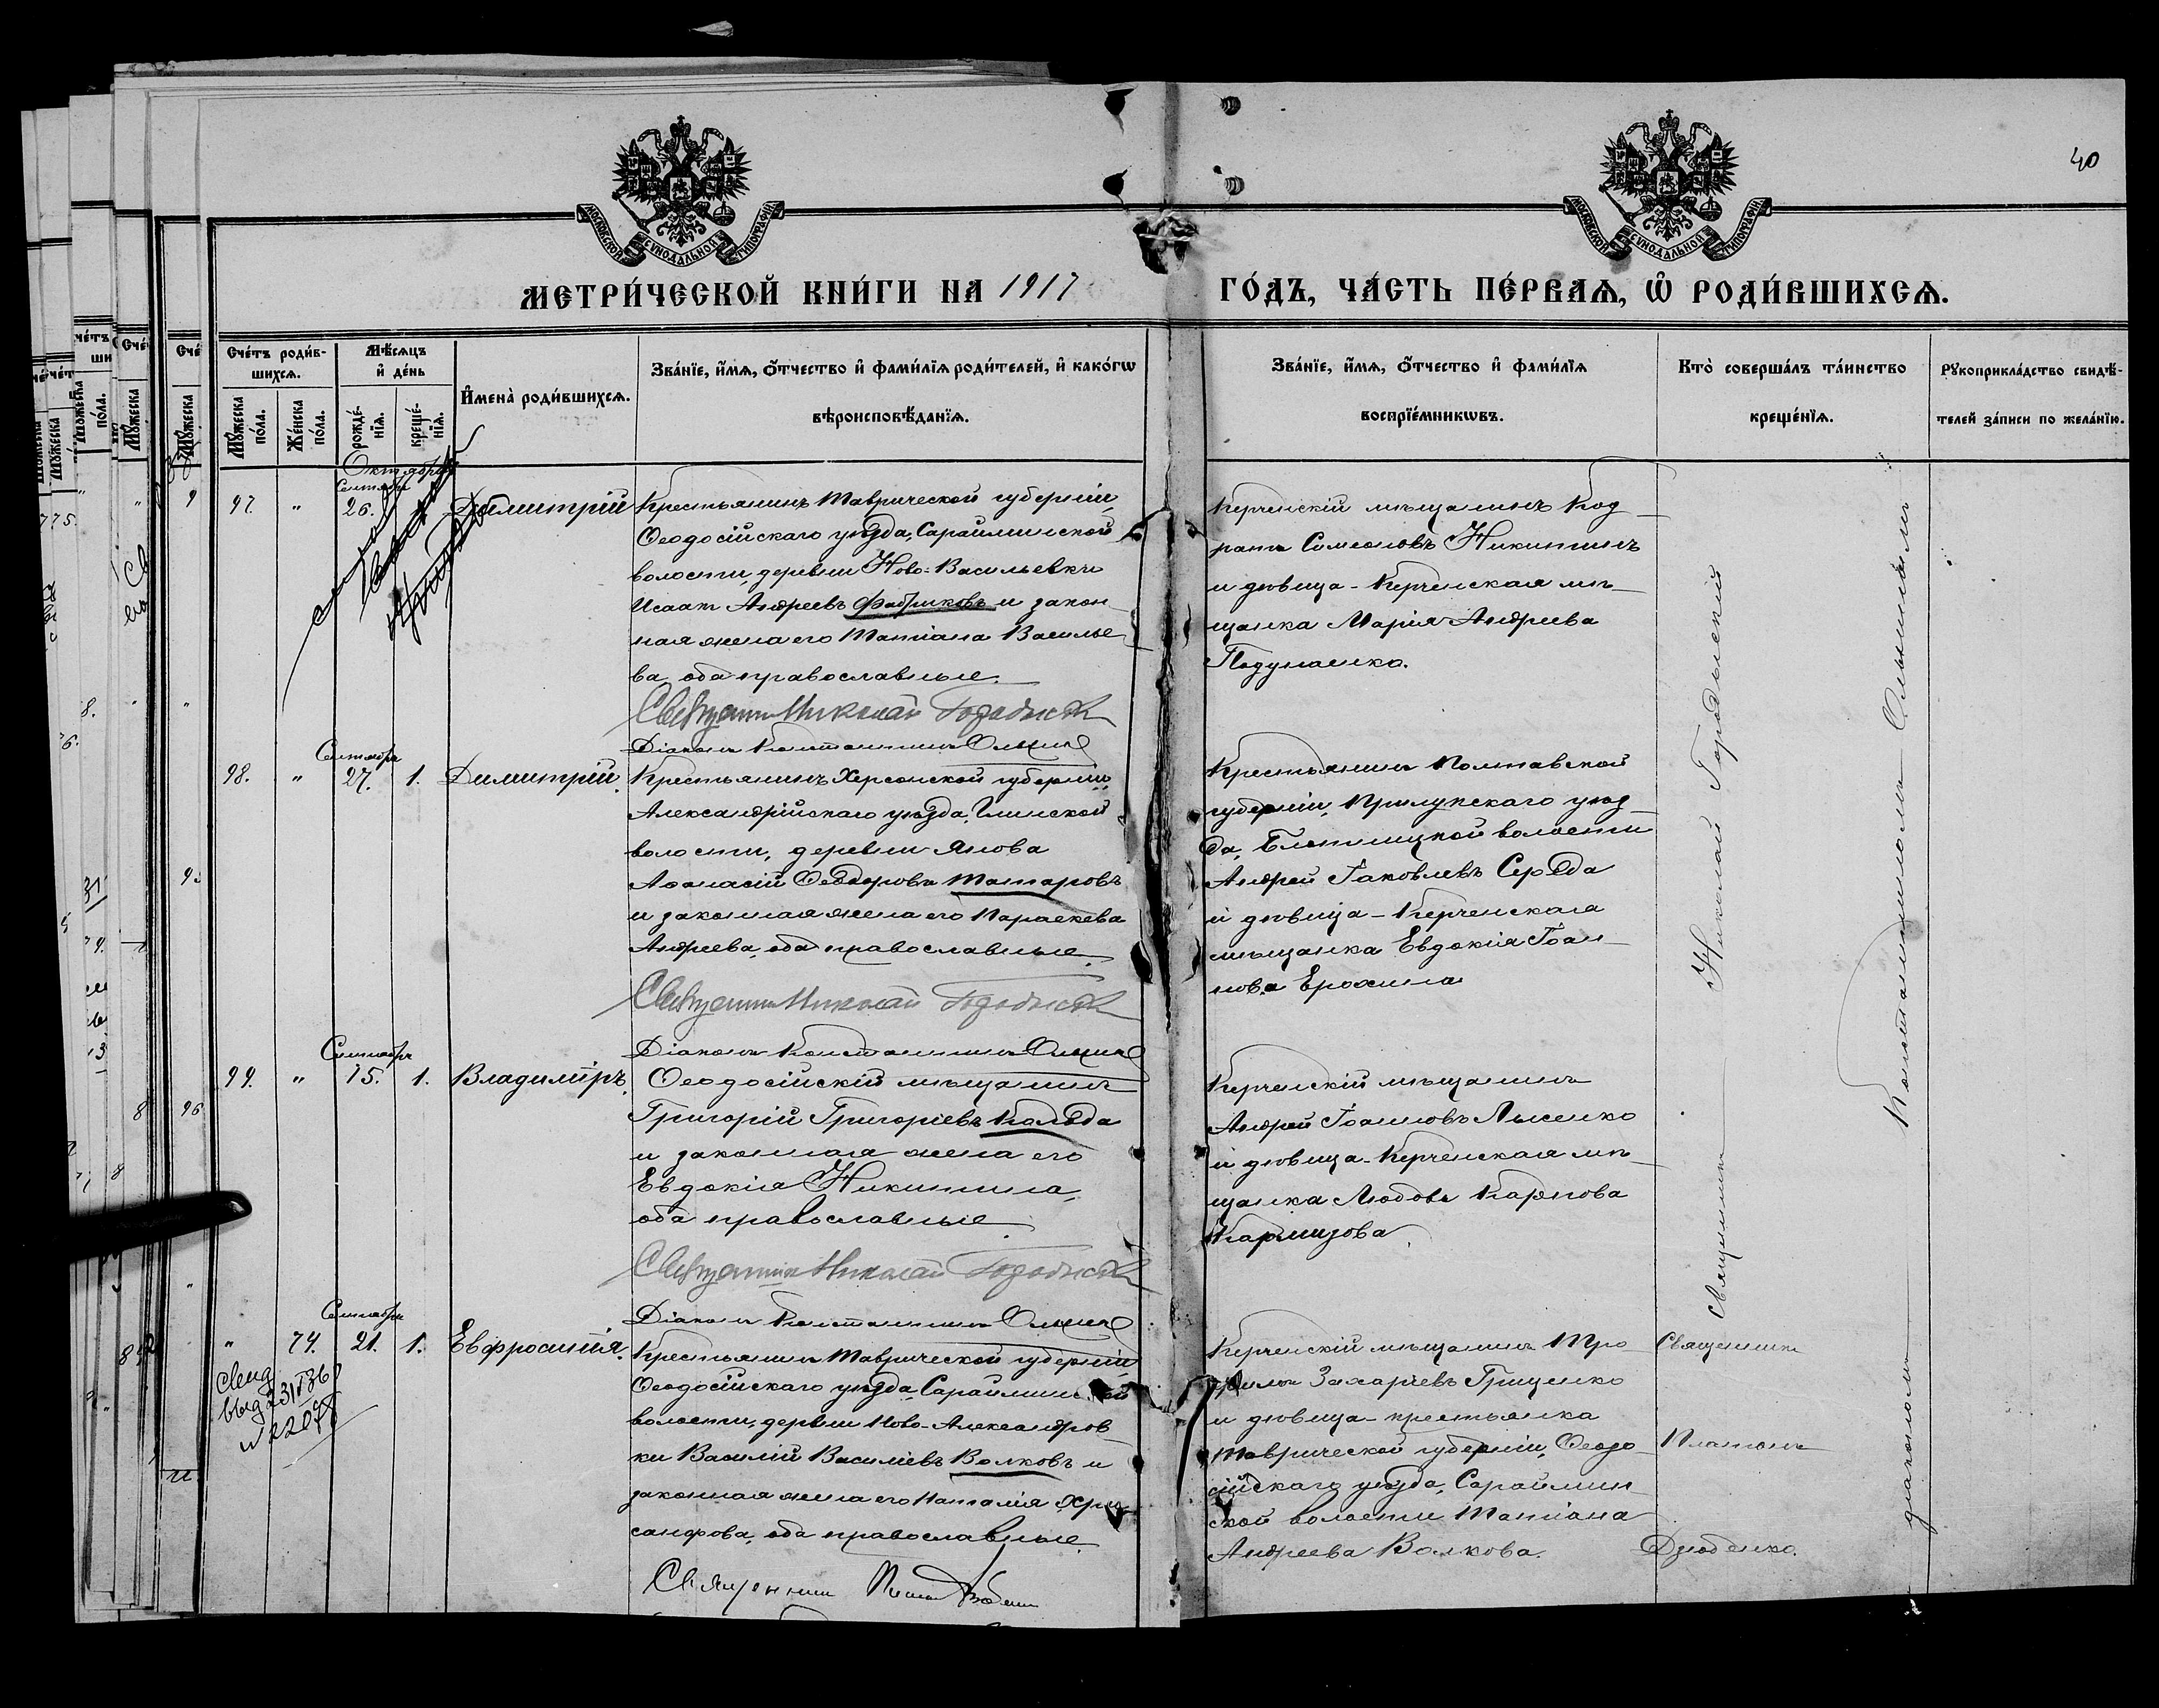 40
МОСКОВСКОЙ СѴНОДАЛЬНОЙ ТИПОГРАФІИ
МОСКОВСКОЙ СѴНОДАЛЬНОЙ ТИПОГРАФІИ
МЕТРИ́ЧЕСКОЙ КНИ́ГИ НА 1917
ГО́ДЪ, ЧА́СТЬ ПЕ́РВАѦ, Ѽ РОДИ́ВШИХСѦ.
Сче́тъ роди́в-
шихсѧ.
Мꙋ́жеска по́ла.
Же́нска по́ла.
Мѣ́сѧцъ и҆ де́нь
рожде́-
нїѧ.
креще́-
нїѧ.
И҆мена̀ роди́вшихсѧ.
Зва́нїе, и҆́мѧ, ѻ҆́тчество и҆ фами́лїѧ роди́телей, и҆ како́гѡ
вѣроисповѣ́данїѧ.
Зва́нїе, и҆́мѧ, ѻ҆́тчество и҆ фами́лїѧ
воспрїе́мникѡвъ.
Кто̀ соверша́лъ та́инство
креще́нїѧ.
Рꙋкоприкла́дство свидѣ́-
телей за́писи по жела́нїю.
Октябрь
Сентябрь
97. " 26. Димитрій
Крестьянинъ Таврической губерніи,
Ѳеодосійскаго уѣзда, Сарайминской
волости, деревни Ново-Васильевки
Исаакъ Андреевъ Фабриковъ и закон-
ная жена его Татіана Василье-
ва, оба православные.
Священникъ Николай Городысскій
Діаконъ Константинъ
Керченскій мѣщанинъ Код-
ратъ Симеоновъ Никитинъ
и дѣвица - Керченская мѣ-
щанка Марія Андреева
Подуманко.
Сентябрь
98. " 27. 1. Димитрій.
Крестьянинъ Херсонской губерніи,
Александрійскаго уѣзда, Глинской
волости, деревни Янова
Аѳанасій Ѳеодоровъ Татаровъ
и законная жена его Параскева
Андреева, оба православные.
Священникъ Николай Городысскій
Діаконъ Константинъ
Крестьянинъ Полтавской
губерніи, Прилукскаго уѣз-
да, волости
Андрей Іаковлевъ Середа
и дѣвица - Керченская
мѣщанка Евдокія Іоан-
нова Ерохина
Сентябрь
99. " 15. 1. Владиміръ.
Ѳеодосійскій мѣщанинъ
Григорій Григоріевъ Коляда
и законная жена его
Евдокія Никитина,
оба православные.
Священникъ Николай Городысскій
Діаконъ Константинъ
Керченскій мѣщанинъ
Андрей Іоанновъ Лысенко
и дѣвица - Керченская мѣ-
щанка Любовь Карпова
Кармизова.
Священникъ Николай Городысскій
діакономъ Константиномъ
Сентябрь
" 74. 21. 1. Евфросинія.
Свид
выд 231 36
№ 2207
Крестьянинъ Таврической губерніи,
Ѳеодосійскаго уѣзда, Сарайминской
волости, деревни Ново-Александров-
ки Василій Василіевъ Волковъ и
законная жена его Наталія Хри-
санфова, оба православные.
Священникъ
Керченскій мѣщанинъ Тро-
филъ Захаріевъ Гриценко
и дѣвица - крестьянка
Таврической губерніи, Ѳеодо-
сійскаго уѣзда, Сараймин-
ской волости Татіана
Андреева Волкова.
Священникъ
Платонъ
Дзюбенко.